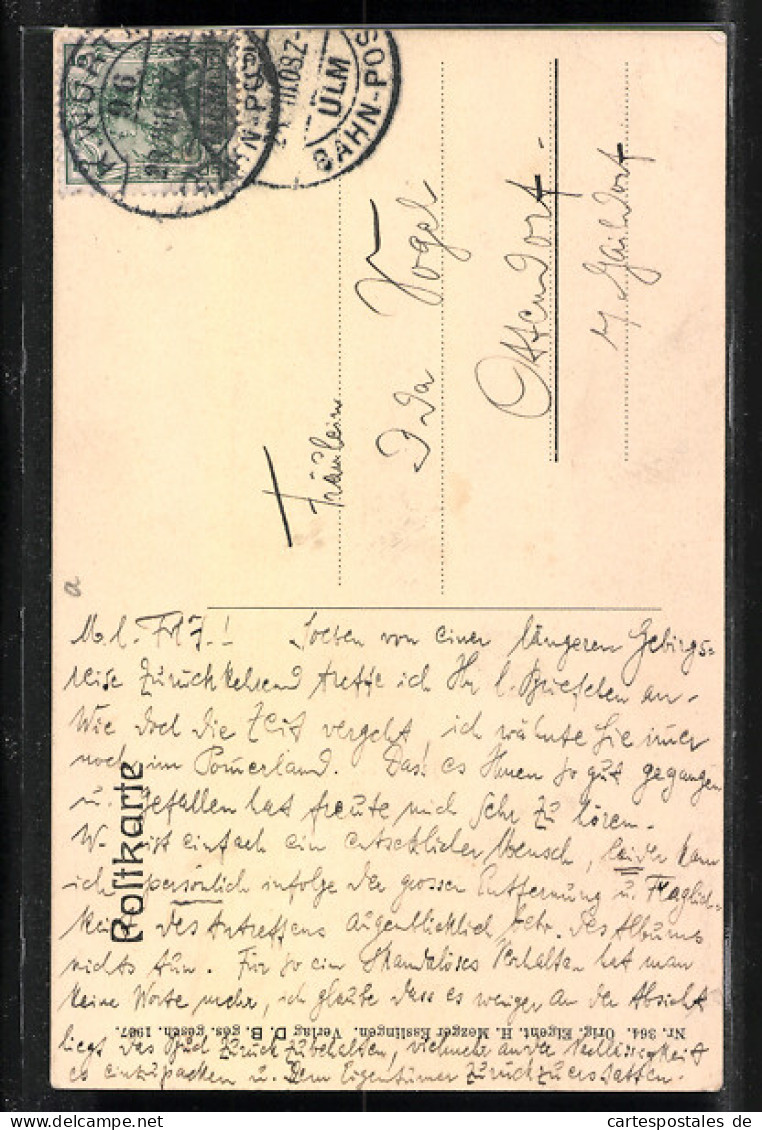 ULM
BAHN-POST
Fräulein
Ida Vogel
Ottendorf
Gaildorf
a
M. l. Frl. J.! Soeben von einer längeren Gebirgs=
reise zurückkehrend treffe ich Ihr l. Briefchen an.
Wie doch die Zeit vergeht, ich wähnte Sie immer
noch im Pommerland. Dass es Ihnen so gut gegangen
u. gefallen hat freute mich sehr zu hören.
W. ist einfach ein entsetzlicher Mensch, leider kann
ich persönlich infolge der grossen Entfernung u. Fraglich-
keit des Antreffens augenblicklich betr. des Albums
nichts tun. Für so ein skandalöses Verhalten hat man
keine Worte mehr, ich glaube dass es weniger an der Absicht
liegt das Buch zurückzubehalten, vielmehr an der Nachlässigkeit
es einzupacken u. dem Eigentümer zurückzuerstatten.
Postkarte
Nr. 364. Orig. Eigent. H. Mezger Esslingen. Verlag D. B. ges. gesch. 1907.
cartespostales de